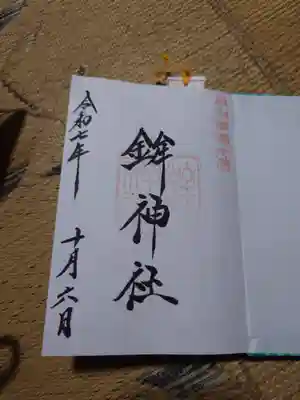 鉾神社
令和七年
十月六日